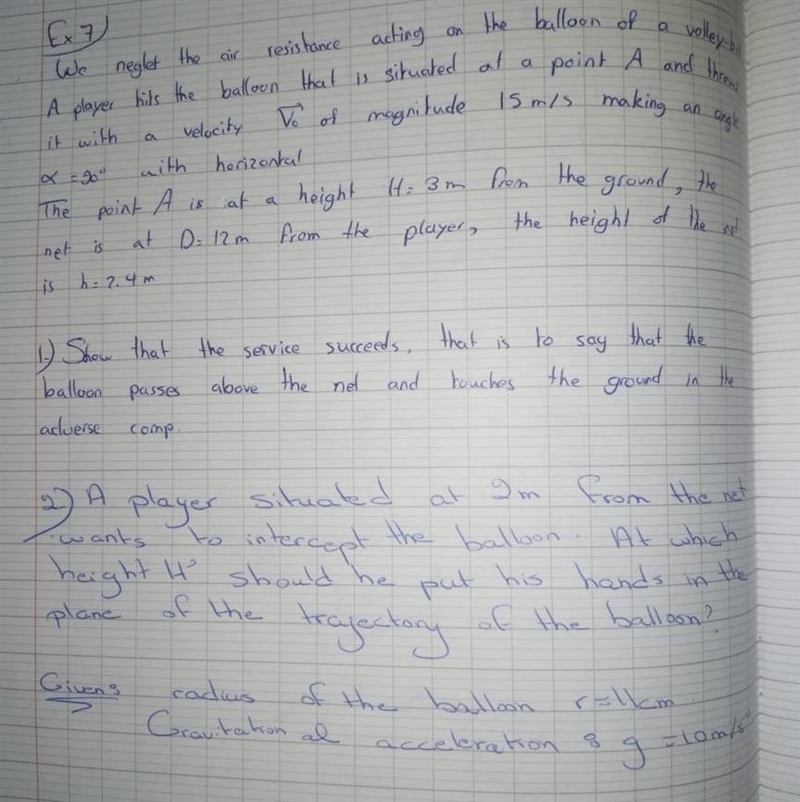 Ex 7)
We neglet the air resistance acting on the balloon of a volley-b
A player hits the balloon that is situated at a point A and throws
it with a velocity V₀ of magnitude 15 m/s making an angle
α = 20° with horizontal
The point A is at a height H = 3 m from the ground, the
net is at D = 12 m from the player, the height of the net
is h = 2.4 m
1.) Show that the service succeeds, that is to say that the
balloon passes above the net and touches the ground in the
adverse comp.
2) A player situated at 2m from the net
wants to intercept the balloon. At which
height H' should he put his hands in the
plane of the trajectory of the balloon?
Given: radius of the balloon r = 11cm
Gravitation al acceleration : g = 10 m/s²